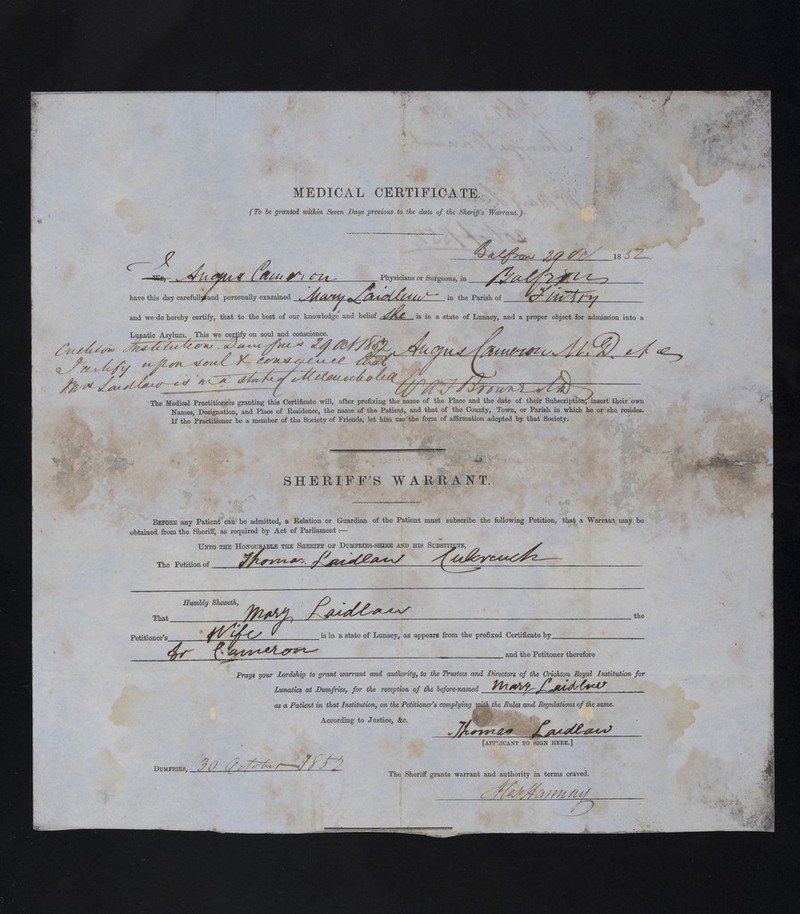 MEDICAL CERTIFICATE.
(To be granted within Seven Days previous to the date of the Sheriff's Warrant.)
Balfron 29 Oct 1852
I Angus Cameron Physicians or Surgeons, in Balfron
have this day carefully and personally examined Mary Laidlaw in the Parish of Fintry
and we do hereby certify, that to the best of our knowledge and belief She is in a state of Lunacy, and a proper object for admission into a
Lunatic Asylum. This we certify on soul and conscience.
Crichton Institution Dumfries 29 Oct 1852 Angus Cameron M.D.
I certify upon soul & consgience that
Mrs Laidlaw is in a state of Melancholia W A F Browne MD
The Medical Practitioners granting this Certificate will, after prefixing the name of the Place and the date of their Subscription, insert their own
Names, Designation, and Place of Residence, the name of the Patient, and that of the County, Town, or Parish in which he or she resides.
If the Practitioner be a member of the Society of Friends, let him use the form of affirmation adopted by that Society.
SHERIFF'S WARRANT.
BEFORE any Patient can be admitted, a Relation or Guardian of the Patient must subscribe the following Petition, that a Warrant may be
obtained from the Sheriff, as required by Act of Parliament:—
UNTO THE HONOURABLE THE SHERIFF OF DUMFRIES-SHIRE AND HIS SUBSTITUTE,
The Petition of Thomas Laidlaw Culcreuch
Humbly Sheweth,
That Mary Laidlaw the
Petitioner's Wife is in a state of Lunacy, as appears from the prefixed Certificate by
Dr Cameron and the Petitoner therefore
Prays your Lordship to grant warrant and authority, to the Trustees and Directors of the Crichton Royal Institution for
Lunatics at Dumfries, for the reception of the before-named Mary Laidlaw
as a Patient in that Institution, on the Petitioner's complying with the Rules and Regulations of the same.
According to Justice, &c.
Thomas Laidlaw
[APPLICANT TO SIGN HERE.]
DUMFRIES, 30 October 1852
The Sheriff grants warrant and authority in terms craved.
Hannay